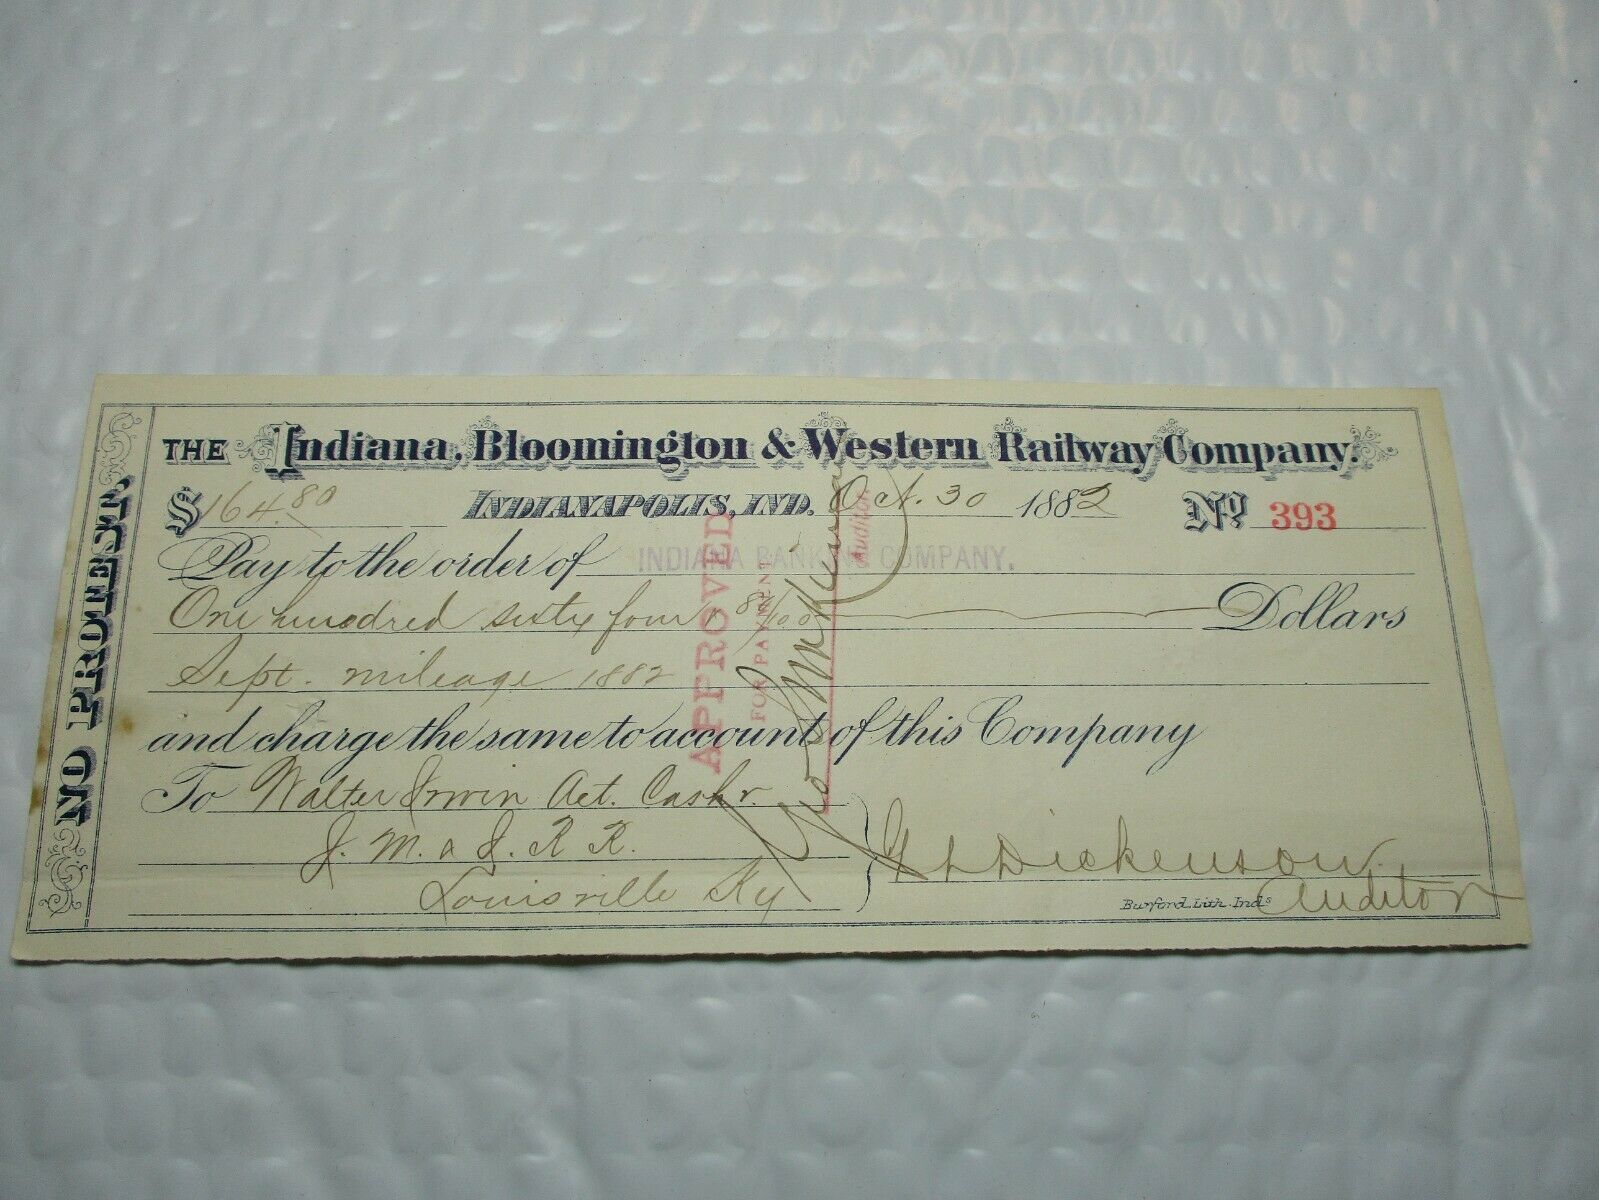 NO PROTEST.
THE Indiana, Bloomington & Western Railway Company.
$164.80 INDIANAPOLIS, IND. Oct. 30 1882 No 393
Pay to the order of INDIANA BANKING COMPANY.
One hundred sixty four & 80/100 Dollars
Sept. mileage 1882
and charge the same to account of this Company
To Walter Irwin Act. Cashr.
J. M. & I. R R.
Louisville Ky
G L Dickenson
Auditor
Burford, Lith. Inds
APPROVED
FOR PAYMENT
Auditor